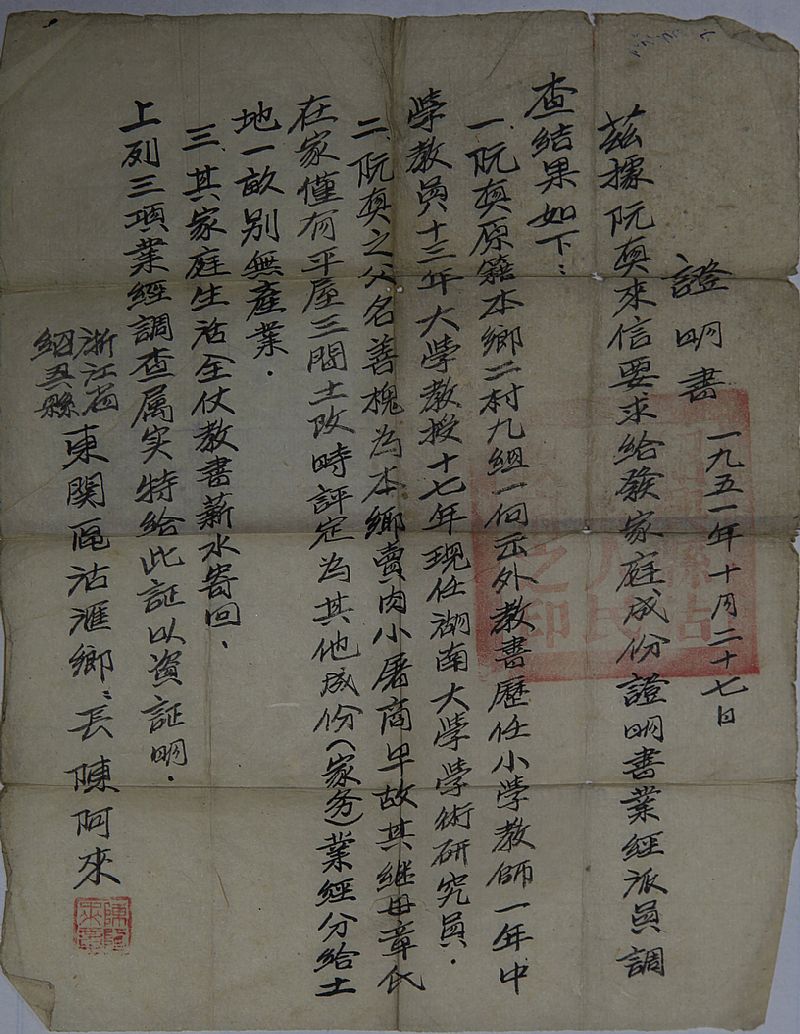 證明書
一九五一年十月二十七日
茲據阮真來信要求給發家庭成份證明書業經派員調
查結果如下：
一、阮真原籍本鄉二村九組一向在外教書歷任小學教師一年中
學教員十三年大學教授十七年現任湖南大學學術研究員．
二、阮真之父名善槐為本鄉賣肉小屠商早故其繼母章氏
在家僅有平屋三間土改時評定為其他成份（家务）業經分給土
地一畝別無產業．
三、其家庭生活全仗教書薪水寄回．
上列三項業經調查属实特給此証以資証明．
浙江省
紹興縣
東關區沽滙鄉鄉長陳阿來